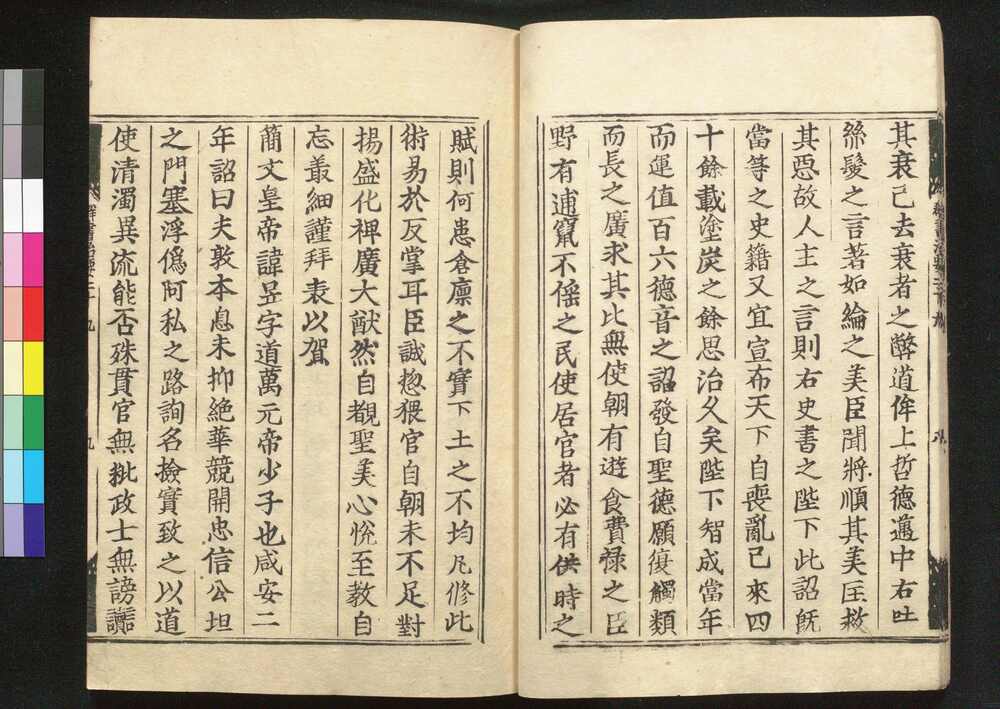 其衰已去衰者之弊道侔上哲德邁中右吐
絲髮之言著如綸之美臣聞將順其美匡救
其惡故人主之言則右史書之陛下此詔既
當等之史籍又宜宣布天下自喪亂已來四
十餘載塗炭之餘思治久矣陛下智成當年
而運值百六德音之詔發自聖德願復觸類
而長之廣求其比無使朝有遊食費祿之臣
野有逋竄不傜之民使居官者必有供時之
賦則何患倉廩之不實下土之不均凡修此
術易於反掌耳臣誠惚猥官自朝未不足對
揚盛化裨廣大猷然自覩聖美心悅至教自
忘叢細謹拜表以賀
簡文皇帝諱昱字道萬元帝少子也咸安二
年詔曰夫敦本息末抑絶華競開忠信公坦
之門塞浮僞阿私之路詢名撿實致之以道
使清濁異流能否殊貫官無秕政士無謗讟
群書治要二十九 九